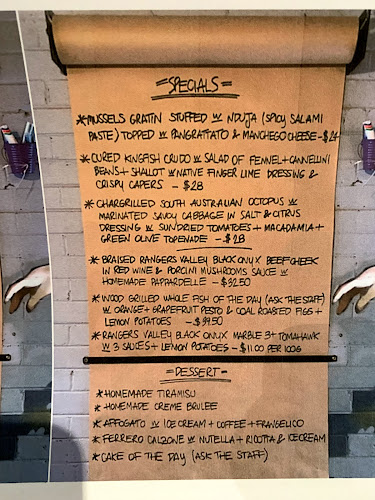 = SPECIALS =
* MUSSELS GRATIN STUFFED W NDUJA (SPICY SALAMI
PASTE) TOPPED W PANGRATTATO & MANCHEGO CHEESE - $24
* CURED KINGFISH CRUDO W SALAD OF FENNEL + CANNELLINI
BEANS + SHALLOT W NATIVE FINGER LIME DRESSING &
CRISPY CAPERS - $28
* CHARGRILLED SOUTH AUSTRALIAN OCTOPUS W
MARINATED SAVOY CABBAGE IN SALT & CITRUS
DRESSING W SUNDRIED TOMATOES + MACADAMIA +
GREEN OLIVE TOPENADE - $28
* BRAISED RANGERS VALLEY BLACK ONYX BEEF CHEEK
IN RED WINE & PORCINI MUSHROOMS SAUCE W
HOMEMADE PAPPARDELLE - $32.50
* WOOD GRILLED WHOLE FISH OF THE DAY (ASK THE STAFF)
W ORANGE + GRAPEFRUIT PESTO & COAL ROASTED FIGS +
LEMON POTATOES - $39.50
* RANGERS VALLEY BLACK ONYX MARBLE 3+ TOMAHAWK
W 3 SAUCES + LEMON POTATOES - $11.00 PER 100G
= DESSERT =
* HOMEMADE TIRAMISU
* HOMEMADE CREME BRULEE
* AFFOGATO W ICE CREAM + COFFEE + FRANGELICO
* FERRERO CALZONE W NUTELLA + RICOTTA & ICECREAM
* CAKE OF THE DAY (ASK THE STAFF)